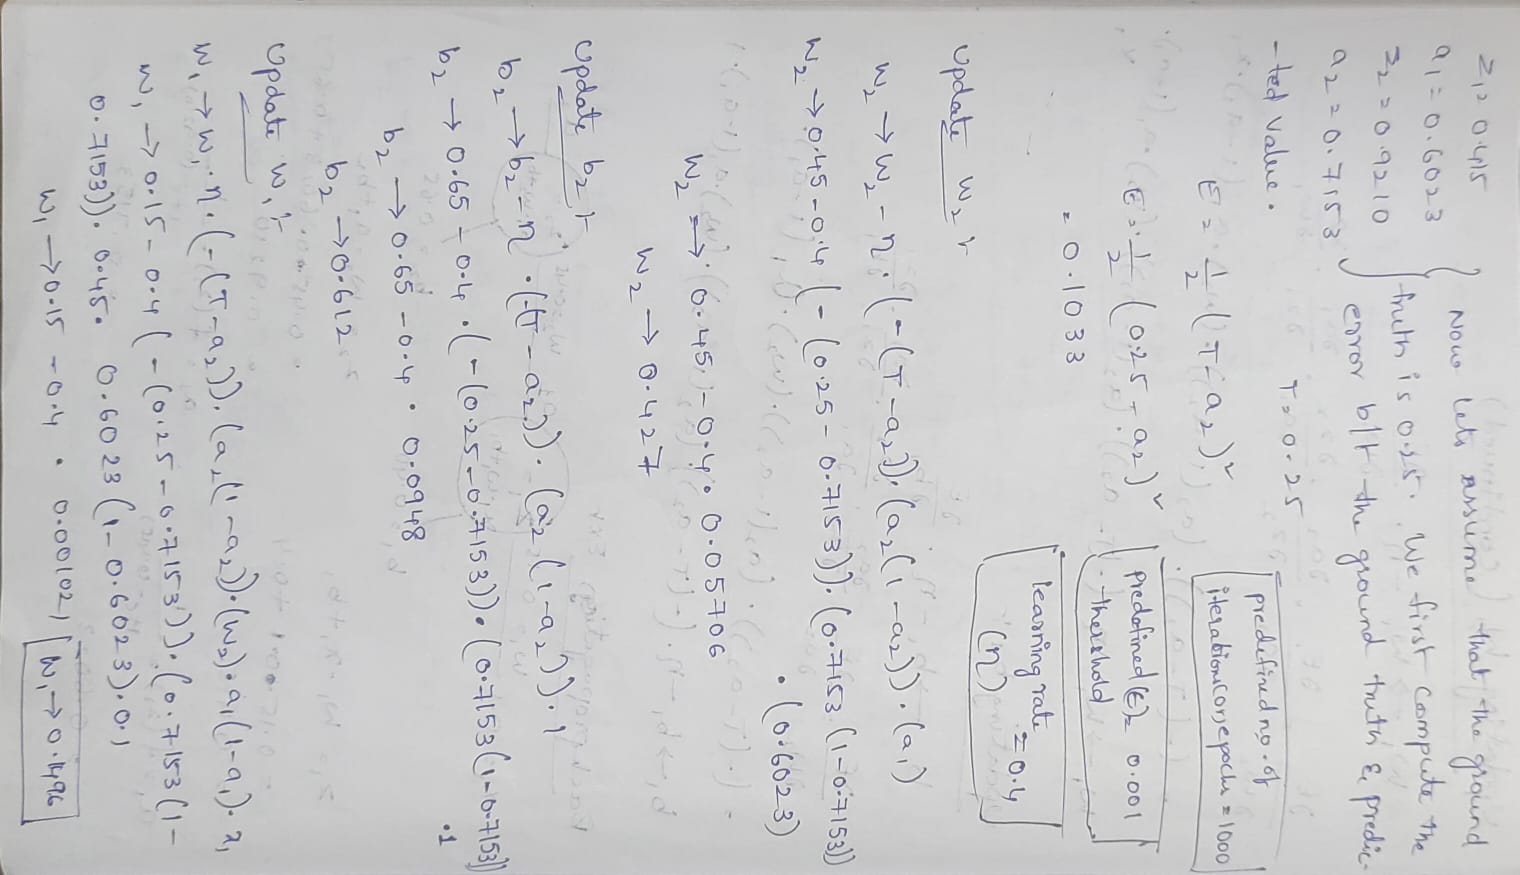 z₁ = 0.415
a₁ = 0.6023
z₂ = 0.9210
a₂ = 0.7153
Now lets assume that the ground
truth is 0.25. We first compute the
error b/t the ground truth & predic-
-ted value.
T = 0.25
predefined no. of
iterations(or)epochs = 1000
E = 1/2 (T - a₂)²
E = 1/2 (0.25 - a₂)²
= 0.1033
predefined (E) = 0.001
thershold
learning rate
(η) = 0.4
Update w₂ :-
w₂ → w₂ - η · (-(T - a₂)) · (a₂(1 - a₂)) · (a₁)
w₂ → 0.45 - 0.4 (-(0.25 - 0.7153)) · (0.7153 (1 - 0.7153))
· (0.6023)
w₂ → 0.45 - 0.4 · 0.05706
w₂ → 0.427
Update b₂ :-
b₂ → b₂ - η · (-(T - a₂)) · (a₂ (1 - a₂)) · 1
b₂ → 0.65 - 0.4 · (-(0.25 - 0.7153)) · (0.7153 (1 - 0.7153))
· 1
b₂ → 0.65 - 0.4 · 0.0948
b₂ → 0.612
Update w₁ :-
w₁ → w₁ · η · (-(T - a₂)) · (a₂(1 - a₂)) · (w₂) · a₁(1 - a₁) · x₁
w₁ → 0.15 - 0.4 (-(0.25 - 0.7153)) · (0.7153 (1 -
0.7153)) · 0.45 · 0.6023 (1 - 0.6023) · 0.1
w₁ → 0.15 - 0.4 · 0.001021 w₁ → 0.1496